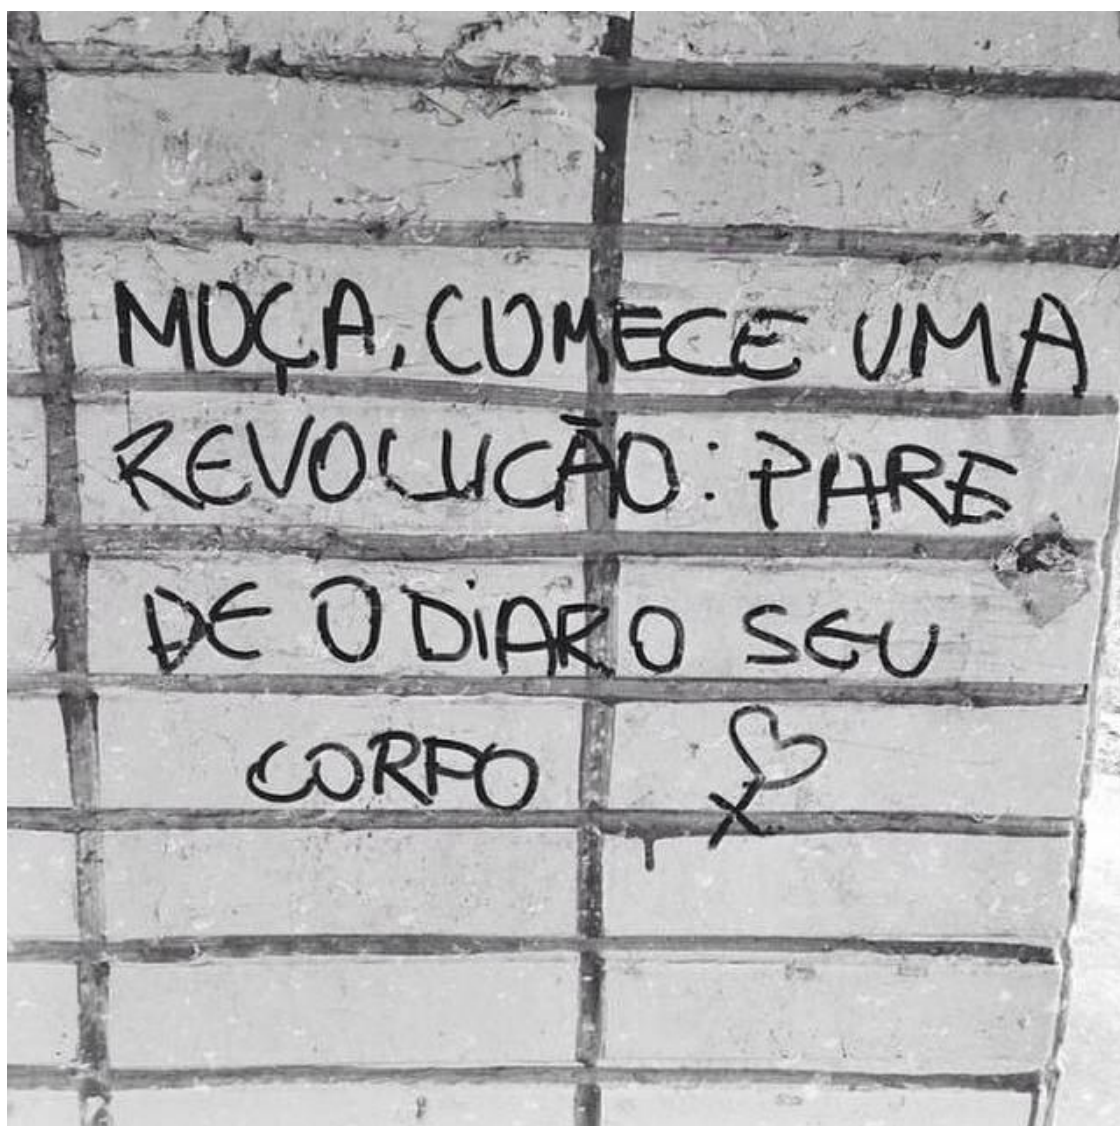 MOÇA, COMECE UMA
REVOLUCÃO: PARE
DE ODiAR O SEU
CORPO